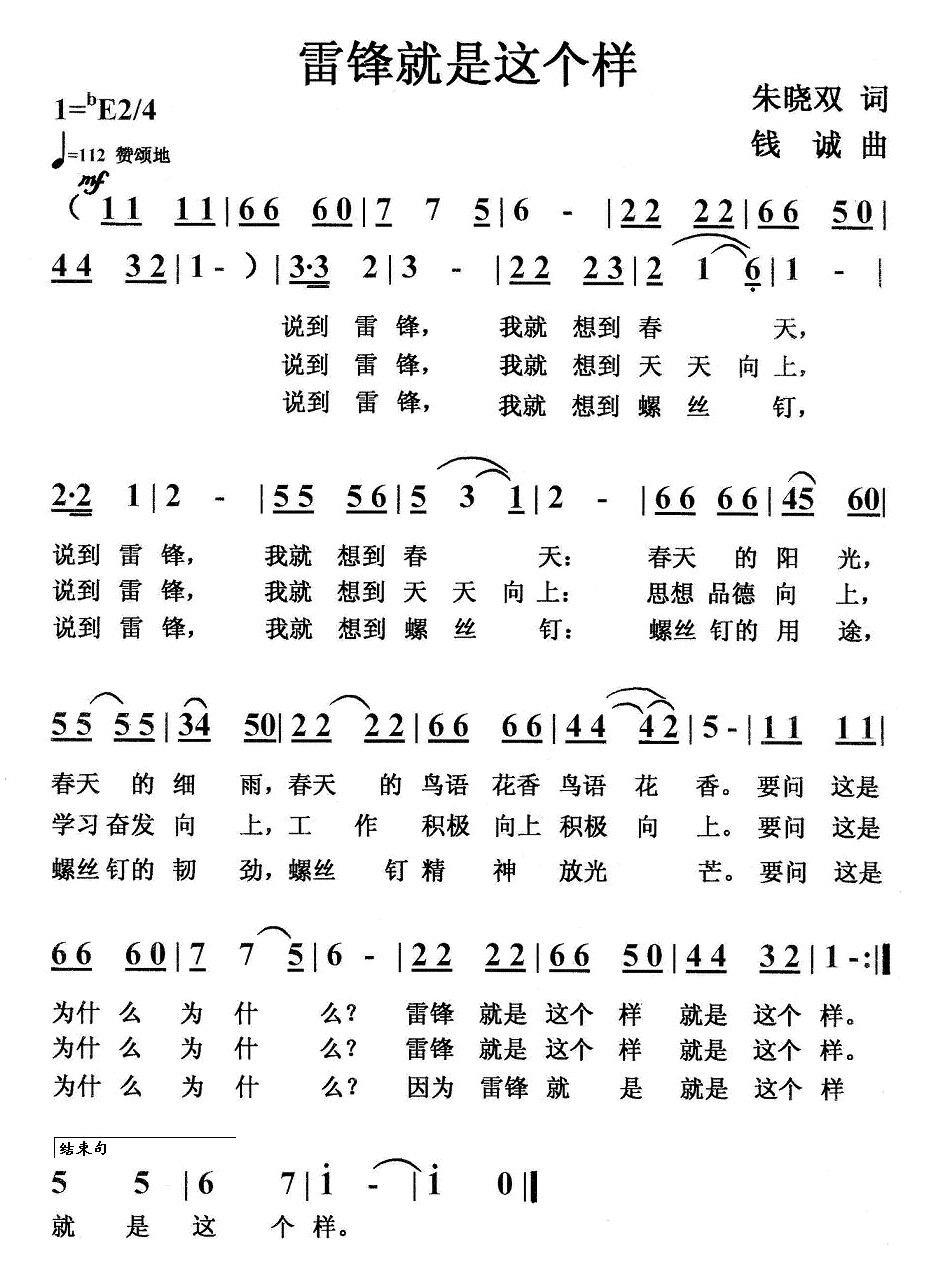 雷锋就是这个样
1=bE2/4
朱晓双 词
♩=112 赞颂地
钱 诚 曲
mf
( 1 1 1 1 | 6 6 6 0 | 7 7 5 | 6 - | 2 2 2 2 | 6 6 5 0 |
4 4 3 2 | 1 - ) | 3·3 2 | 3 - | 2 2 2 3 | 2 1 6̣ | 1 - |
说到 雷 锋, 我就 想到 春 天,
说到 雷 锋, 我就 想到 天 天 向 上,
说到 雷 锋, 我就 想到 螺 丝 钉,
2·2 1 | 2 - | 5 5 5 6 | 5 3 1 | 2 - | 6 6 6 6 | 4 5 6 0 |
说到 雷 锋, 我就 想到 春 天: 春天 的 阳 光,
说到 雷 锋, 我就 想到 天 天 向 上: 思想 品德 向 上,
说到 雷 锋, 我就 想到 螺 丝 钉: 螺丝 钉的 用 途,
5 5 5 5 | 3 4 5 0 | 2 2 2 2 | 6 6 6 6 | 4 4 4 2 | 5 - | 1 1 1 1 |
春天 的 细 雨, 春天 的 鸟语 花香 鸟语 花 香。要问 这是
学习 奋发 向 上, 工 作 积极 向上 积极 向 上。要问 这是
螺丝 钉的 韧 劲, 螺丝 钉 精 神 放光 芒。要问 这是
6 6 6 0 | 7 7 5 | 6 - | 2 2 2 2 | 6 6 5 0 | 4 4 3 2 | 1 - :||
为什 么 为 什 么? 雷锋 就是 这个 样 就是 这个 样。
为什 么 为 什 么? 雷锋 就是 这个 样 就是 这个 样。
为什 么 为 什 么? 因为 雷锋 就 是 就是 这个 样
结束句
5 5 | 6 7 | 1̇ - | 1̇ 0 ||
就 是 这 个 样。